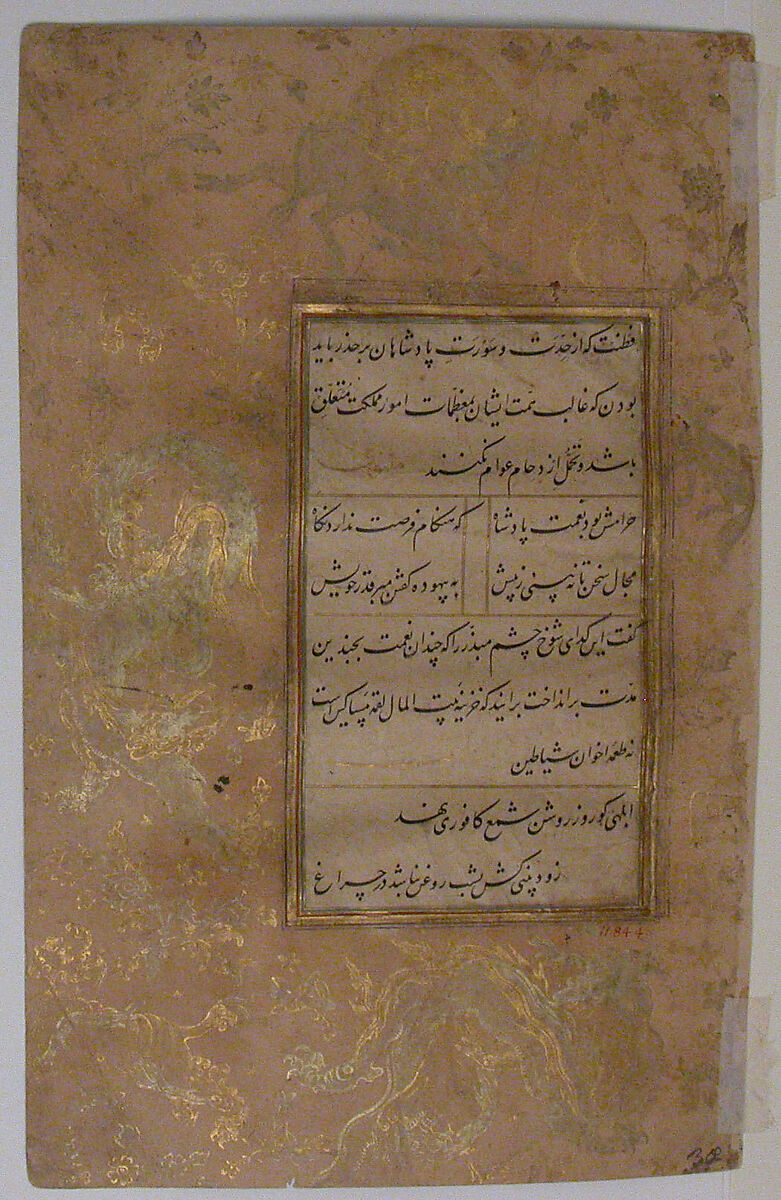 فطنت که از حدّت و سَورَتِ پادشاهان بر حذر باید
بودن که غالب همت ایشان بمعظّمات امور مملکت متعلّق
باشد و تحمّل ازدحام عوام نکنند
حرامش بود نعمت پادشاه که هنگام فرصت ندارد نگاه
مجال سخن تا نه بینی ز پیش به بیهوده گفتن مبر قدر خویش
گفت این گدای شوخ چشم مبذّر را که چندان نعمت بچندین
مدّت برانداخت برانید که خزینه بیت المال لقمه مساکین است
نه طعمه اخوان شیاطین
ابلهی کو روز روشن شمع کافوری نهد
زود بینی کش بشب روغن نباشد در چراغ
11.84.4